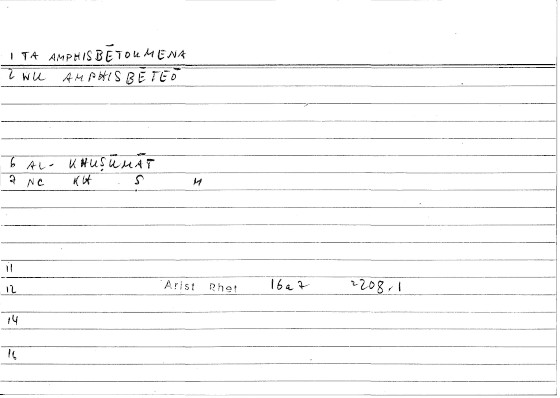 1 TA AMPHISBĒTOUMENA
2 WU AMPHISBĒTEŌ
6 AL- KHUṢŪMĀT
7 NC KH Ṣ M
11
12 Arist Rhet 16a7 2208,1
14
16